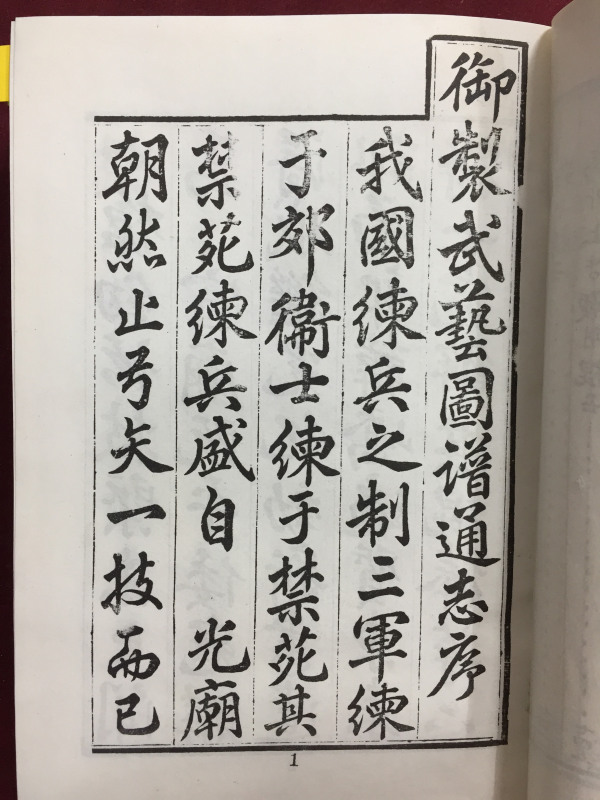 御製武藝圖譜通志序
我國練兵之制三軍練
于郊衞士練于禁苑其
禁苑練兵盛自 光廟
朝然止弓矢一技而已
1